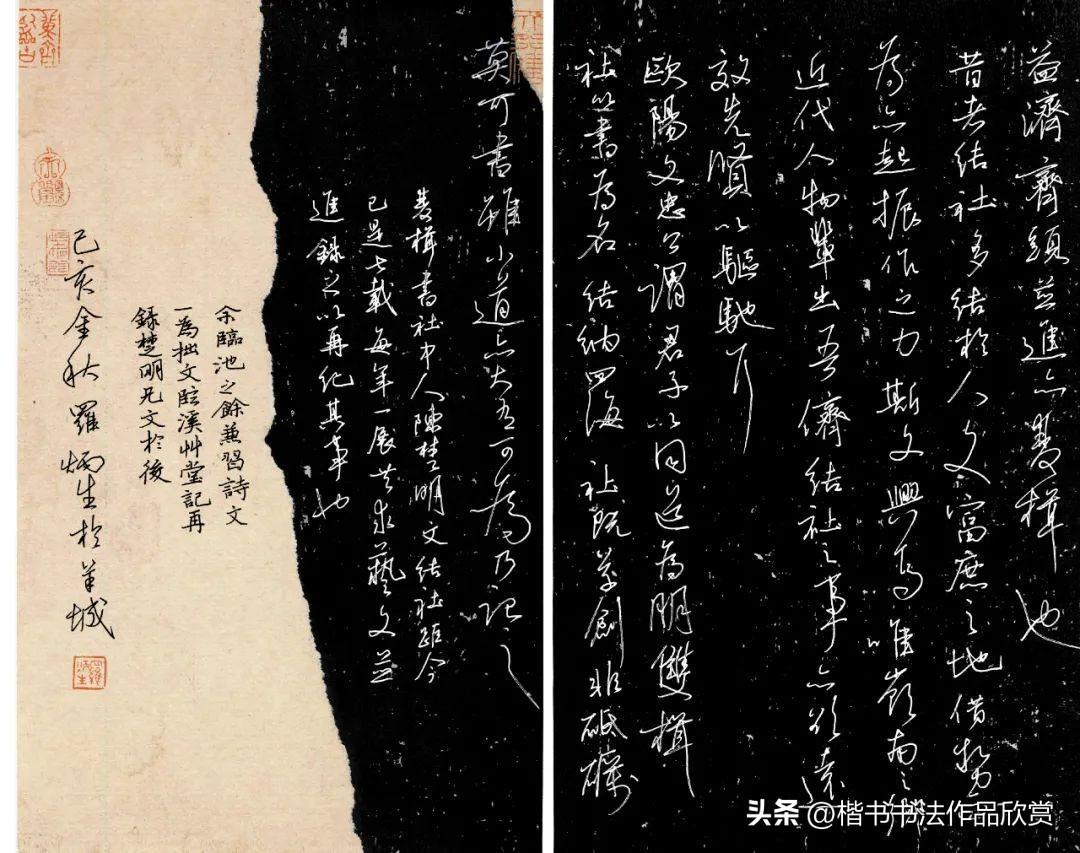 益濟齊頭並進亦雙楫也
昔者結社多結於人文富庶之地借勢
為亦起振作之力斯文興焉唯嶺南之
近代人物輩出吾儕結社之事亦欲遠
效先賢以驅馳耳
歐陽文忠公謂君子以同道為朋雙楫
社以書為名結納四海社既草創非砥礪
莫可書雖小道亦大有可為乃記之
雙楫書社中人陳楚明文結社距今
已是七載每年一展共求藝文並
進錄之以再紀其事也
余臨池之餘兼習詩文
一為拙文臨溪艸堂記再
錄楚明兄文於後
己亥金秋羅炳生於羊城
头条 @楷书书法作品欣赏